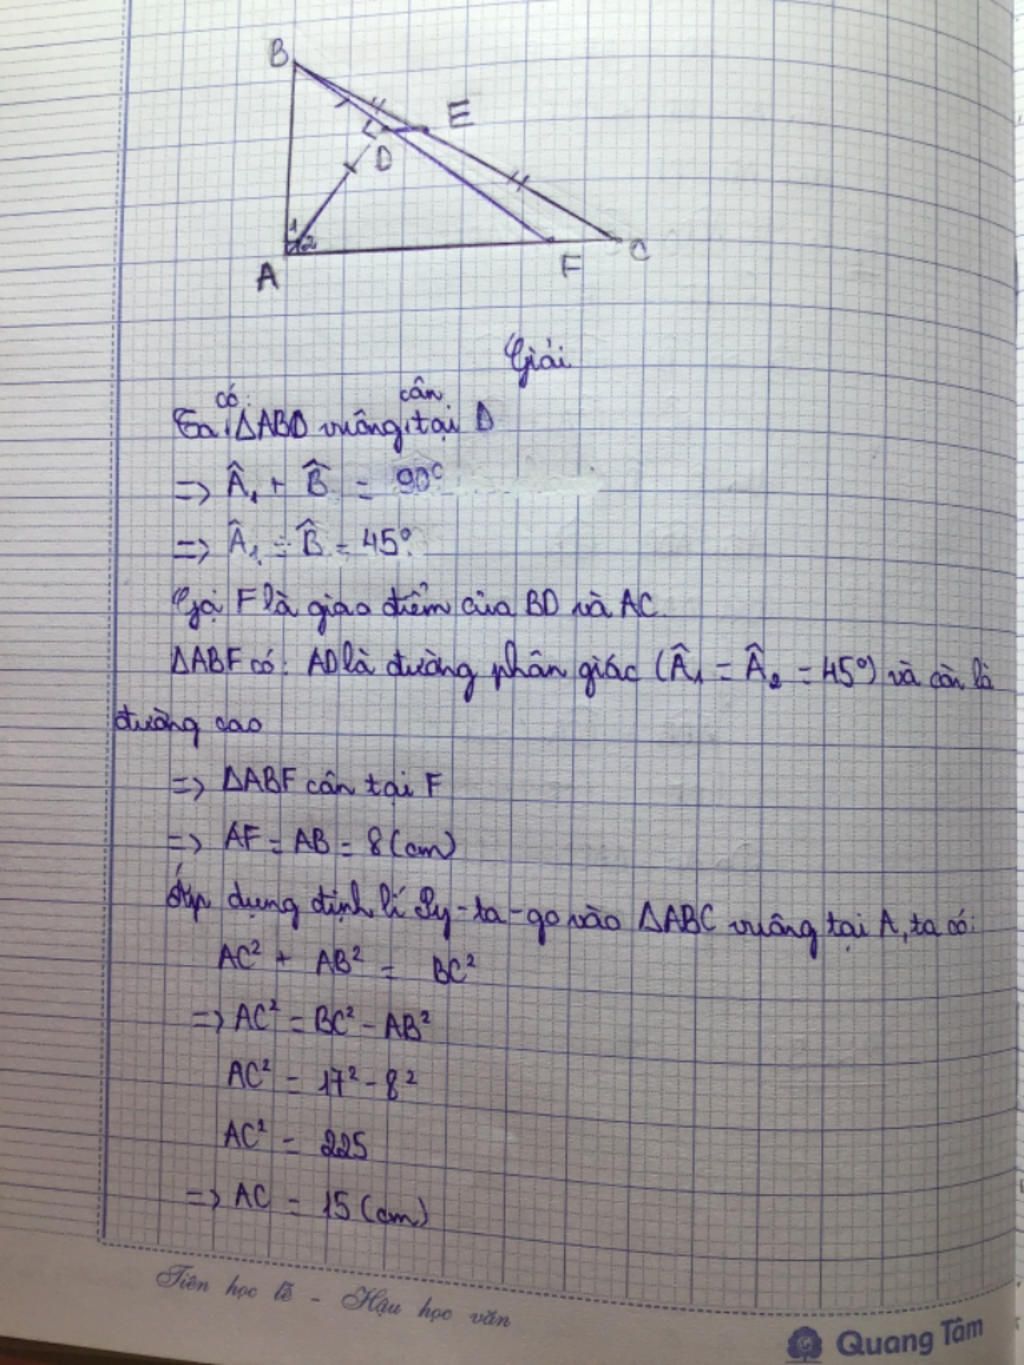 B
E
D
1
2
A
F
C
Giải
có: cân
Ta ΔABD vuông tại D
=> Â₁ + B̂ = 90°
=> Â₁ = B̂ = 45°
Gọi F là giao điểm của BD và AC.
ΔABF có: AD là đường phân giác (Â₁ = Â₂ = 45°) và còn là
đường cao
=> ΔABF cân tại F
=> AF = AB = 8 (cm)
Áp dụng định lí Py-ta-go vào ΔABC vuông tại A, ta có:
AC² + AB² = BC²
=> AC² = BC² - AB²
AC² = 17² - 8²
AC² = 225
=> AC = 15 (cm)
Tiên học lễ - Hậu học văn
Quang Tâm